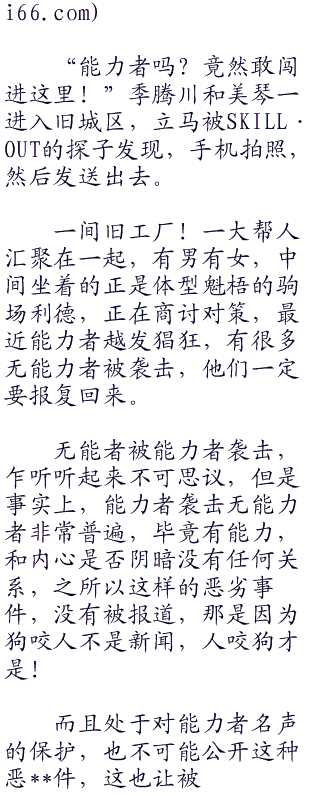 i66.com)
“能力者吗？竟然敢闯
进这里！”季腾川和美琴一
进入旧城区，立马被SKILL·
OUT的探子发现，手机拍照，
然后发送出去。
一间旧工厂！一大帮人
汇聚在一起，有男有女，中
间坐着的正是体型魁梧的驹
场利德，正在商讨对策，最
近能力者越发猖狂，有很多
无能力者被袭击，他们一定
要报复回来。
无能者被能力者袭击，
乍听听起来不可思议，但是
事实上，能力者袭击无能力
者非常普遍，毕竟有能力，
和内心是否阴暗没有任何关
系，之所以这样的恶劣事
件，没有被报道，那是因为
狗咬人不是新闻，人咬狗才
是！
而且处于对能力者名声
的保护，也不可能公开这种
恶**件，这也让被